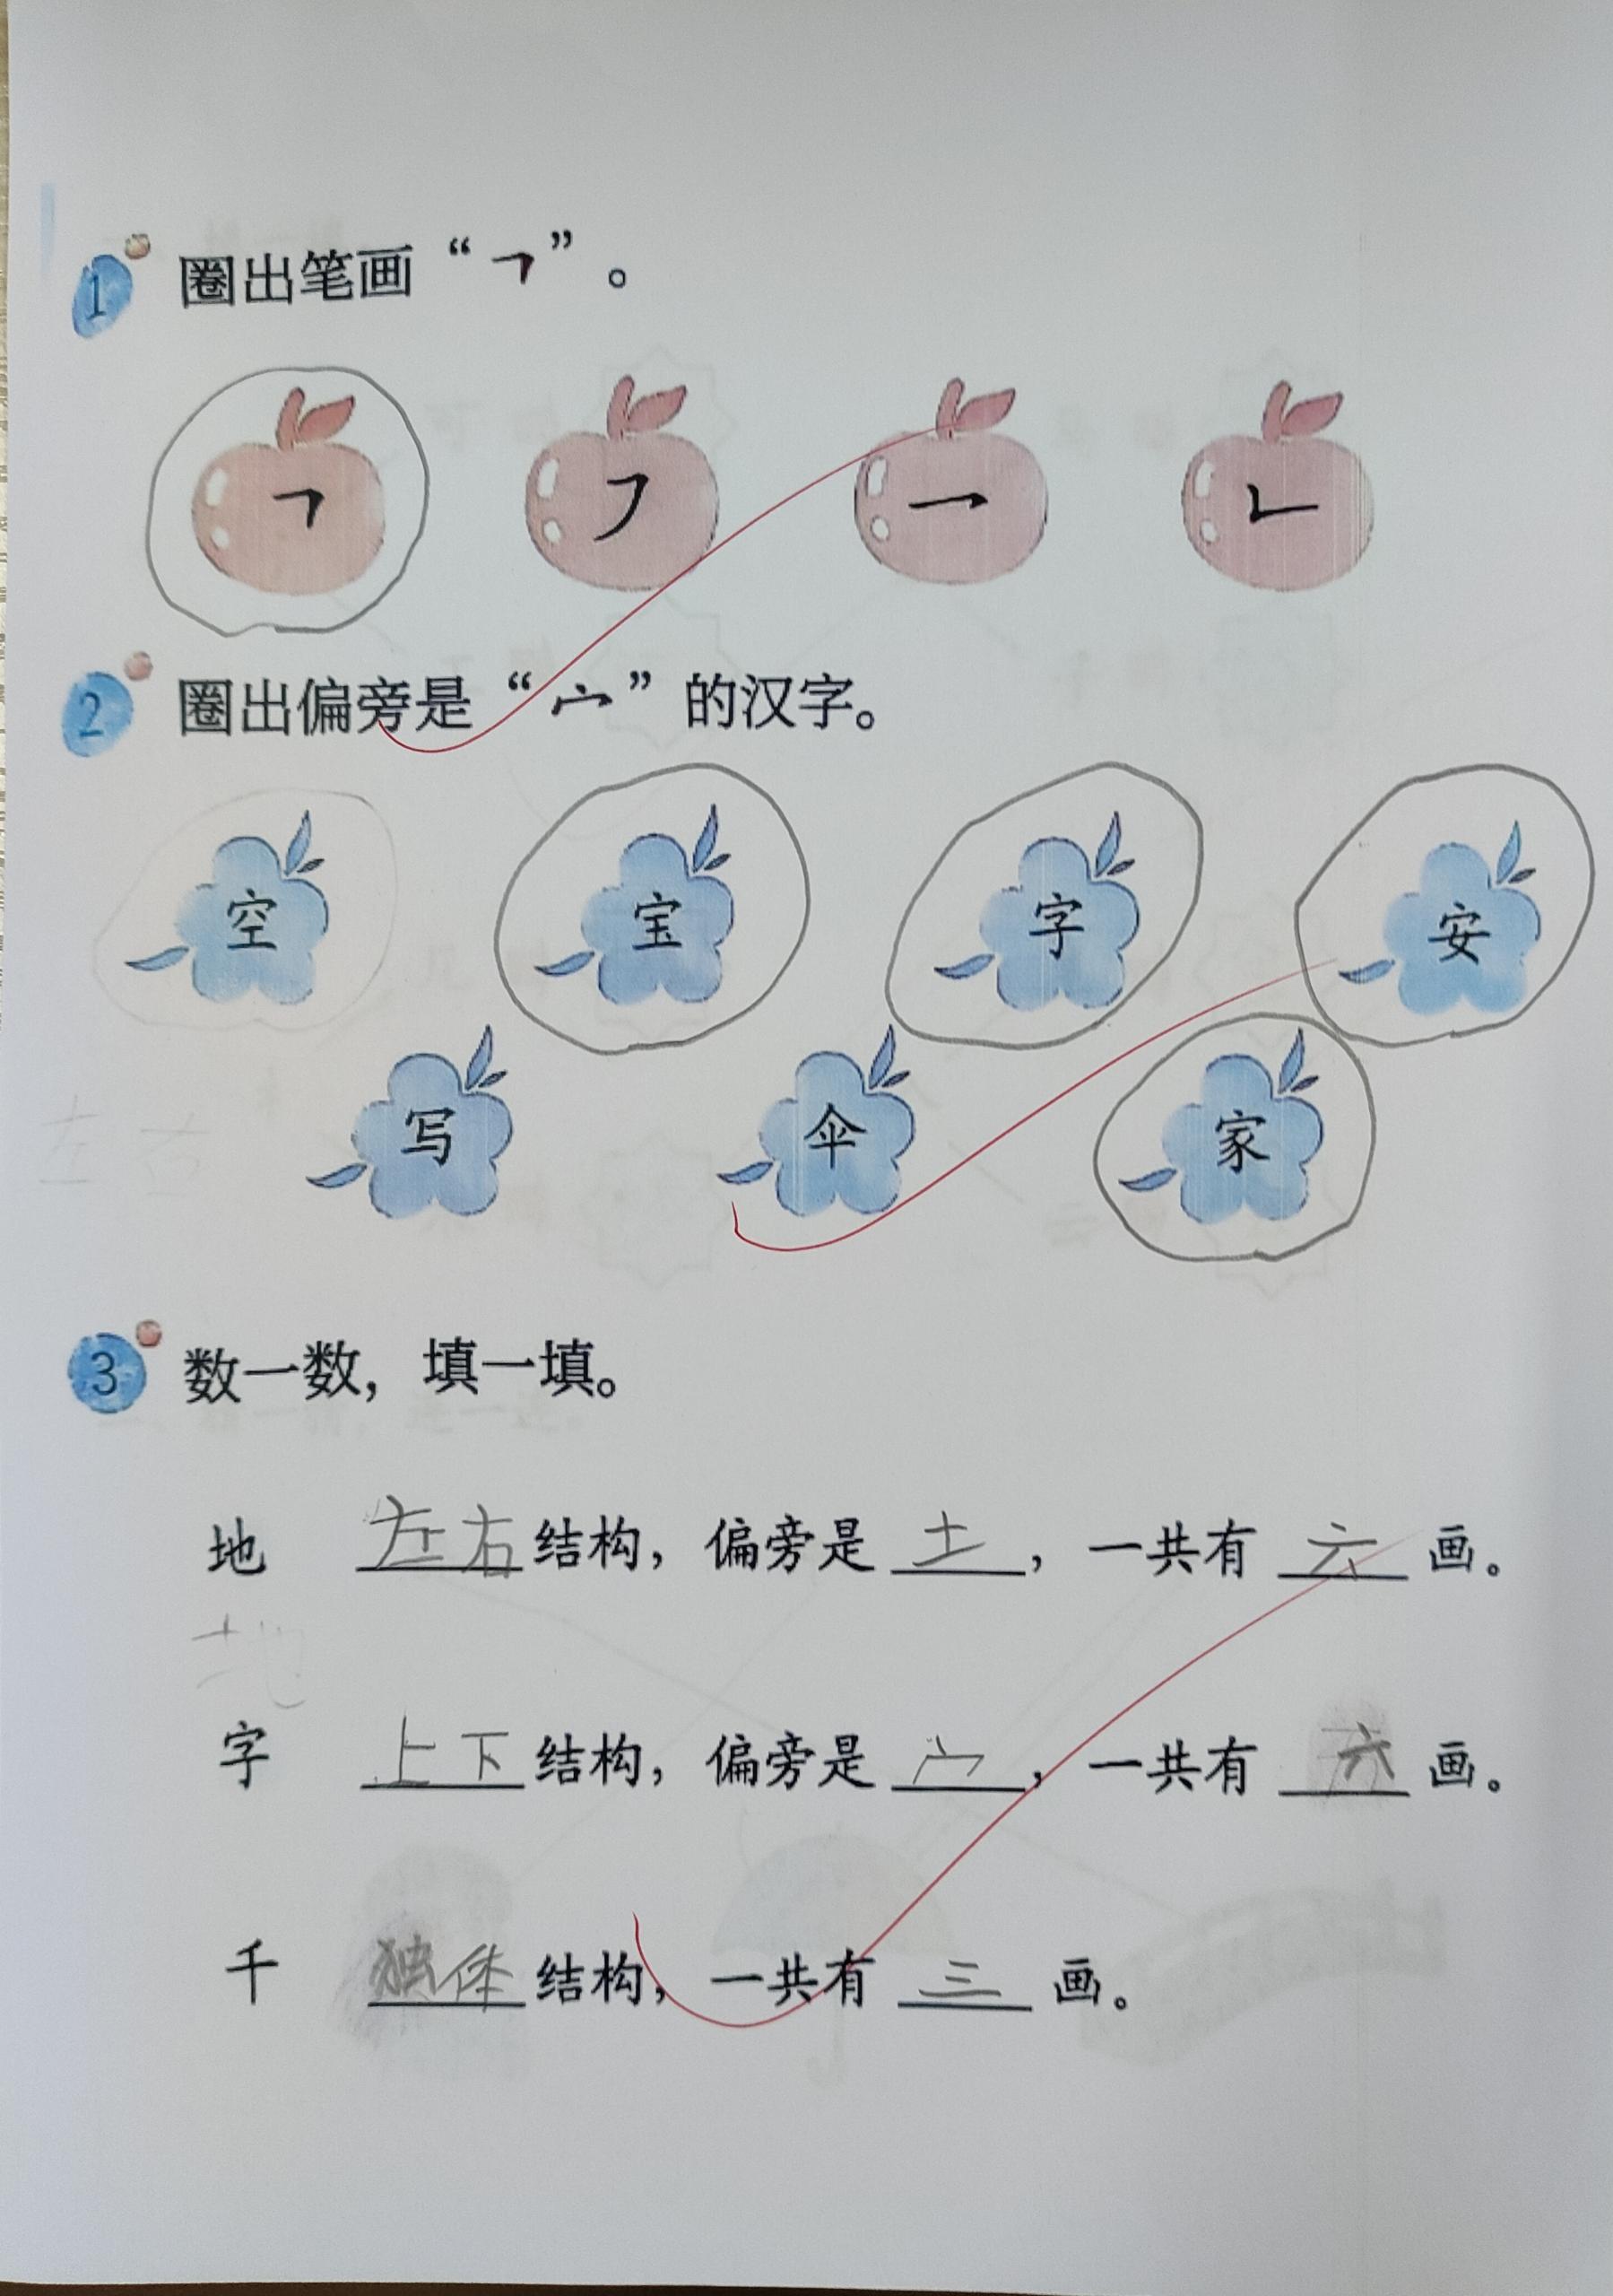 1 圈出笔画“㇕”。
㇕ ㇇ ㇐ ㇗
2 圈出偏旁是“宀”的汉字。
空 宝 字 安
写 伞 家
左右
3 数一数，填一填。
地 左右结构，偏旁是土，一共有六画。
地
字 上下结构，偏旁是宀，一共有六画。
千 独体结构，一共有三画。